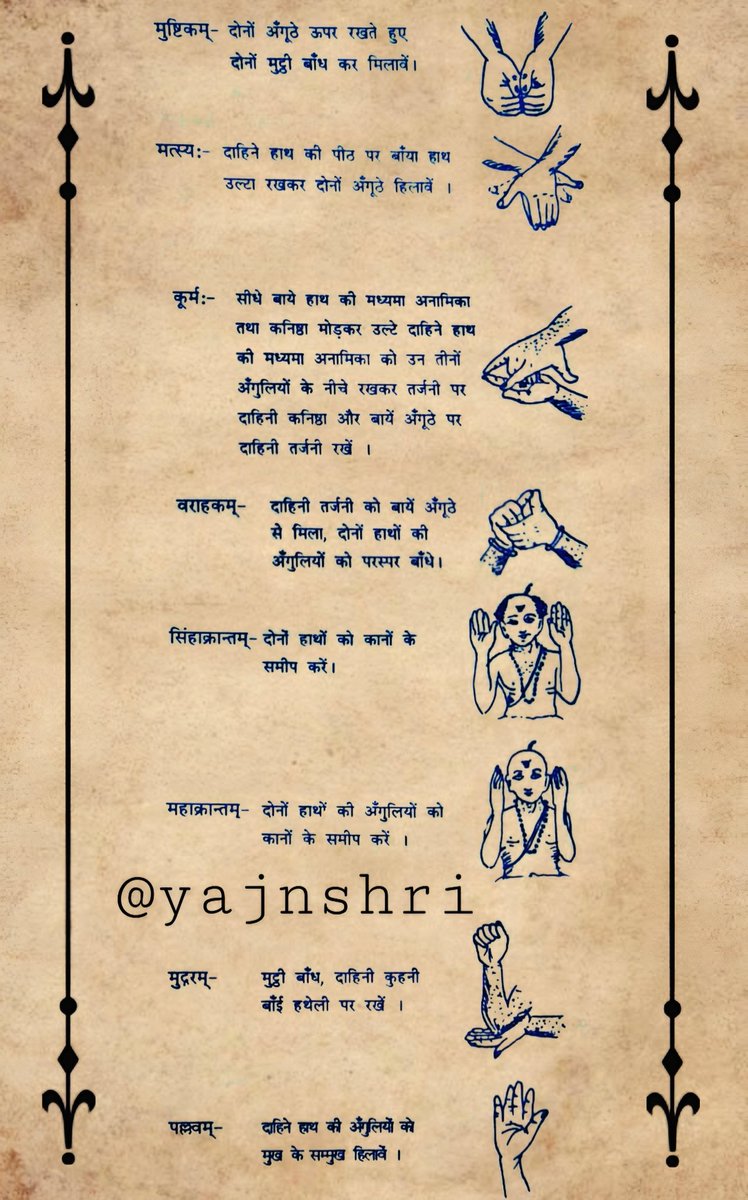 मुष्टिकम्- दोनों अँगूठे ऊपर रखते हुए
दोनों मुट्ठी बाँध कर मिलावें।
मत्स्य:- दाहिने हाथ की पीठ पर बाँया हाथ
उल्टा रखकर दोनों अँगूठे हिलावें ।
कूर्म:- सीधे बाये हाथ की मध्यमा अनामिका
तथा कनिष्ठा मोड़कर उल्टे दाहिने हाथ
की मध्यमा अनामिका को उन तीनों
अँगुलियों के नीचे रखकर तर्जनी पर
दाहिनी कनिष्ठा और बायें अँगूठे पर
दाहिनी तर्जनी रखें ।
वराहकम्- दाहिनी तर्जनी को बायें अँगूठे
से मिला, दोनों हाथों की
अँगुलियों को परस्पर बाँधे।
सिंहाक्रान्तम्- दोनों हाथों को कानों के
समीप करें।
महाक्रान्तम्- दोनों हाथों की अँगुलियों को
कानों के समीप करें ।
@yajnshri
मुद्गरम्- मुट्ठी बाँध, दाहिनी कुहनी
बाँई हथेली पर रखें ।
पल्लवम्- दाहिने हाथ की अँगुलियों को
मुख के सम्मुख हिलावें ।